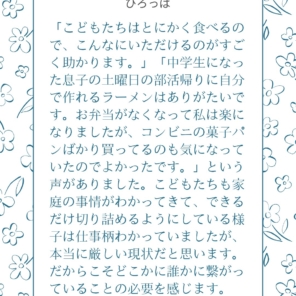 ひろっぱ
「こどもたちはとにかく食べるの
で、こんなにいただけるのがすご
く助かります。」「中学生になっ
た息子の土曜日の部活帰りに自分
で作れるラーメンはありがたいで
す。お弁当がなくなって私は楽に
なりましたが、コンビニの菓子パ
ンばかり買ってるのも気になって
いたのでよかったです。」という
声がありました。こどもたちも家
庭の事情がわかってきて、できる
だけ切り詰めるようにしている様
子は仕事柄わかっていましたが、
本当に厳しい現状だと思います。
だからこそどこかに誰かに繋がっ
ていることの必要を感じます。